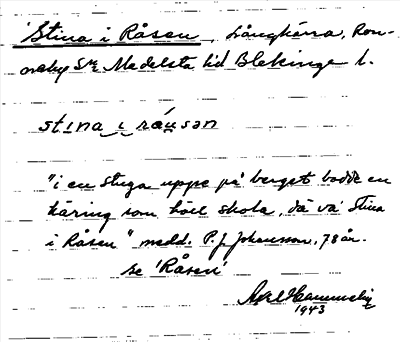 'Stina i Råsen, Långkärra, Ron-
neby Sn Medelsta hd Blekinge l.
stina i råusən
"i en stuga uppe på berget bodde en
käring som höll skola, dä va' Stina
i Råsen" medd. P. J. Johansson, 78 år.
se 'Råsen'
1943